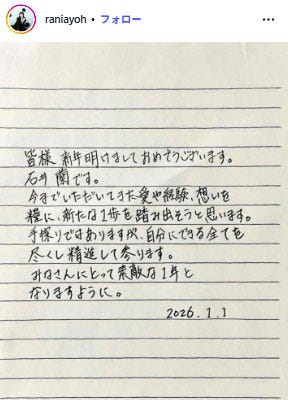 raniayoh • フォロー
皆様 新年明けましておめでとうございます。
石井 蘭です。
今までいただいてきた愛や経験、想いを
糧に、新たな1歩を踏み出そうと思います。
手探りではありますが、自分にできる全てを
尽くし精進して参ります。
みなさんにとって素敵な1年と
なりますように。
2026.1.1